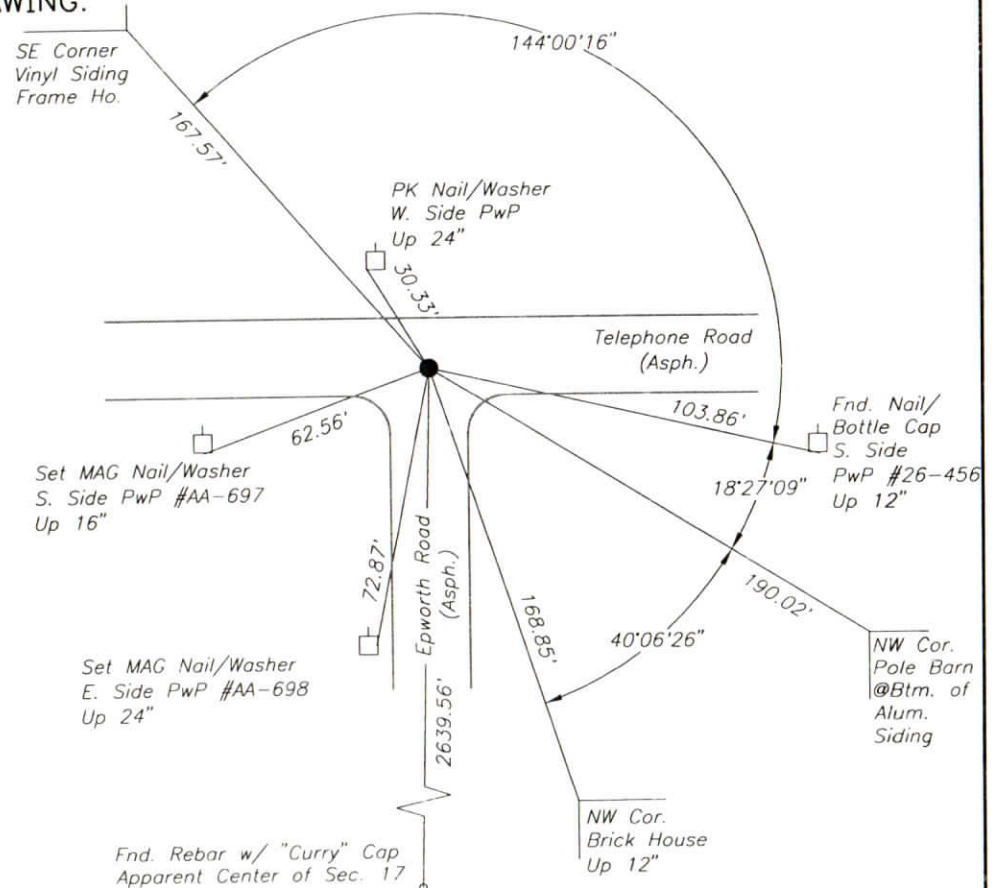 AWING:
144°00'16"
SE Corner
Vinyl Siding
Frame Ho.
167.57'
PK Nail/Washer
W. Side PwP
Up 24"
30.33'
Telephone Road
(Asph.)
103.86'
Fnd. Nail/
Bottle Cap
S. Side
PwP #26-456
Up 12"
62.56'
Set MAG Nail/Washer
S. Side PwP #AA-697
Up 16"
18°27'09"
72.87'
Epworth Road
(Asph.)
168.85'
190.02'
40°06'26"
NW Cor.
Pole Barn
@Btm. of
Alum.
Siding
Set MAG Nail/Washer
E. Side PwP #AA-698
Up 24"
2639.56'
NW Cor.
Brick House
Up 12"
Fnd. Rebar w/ "Curry" Cap
Apparent Center of Sec. 17